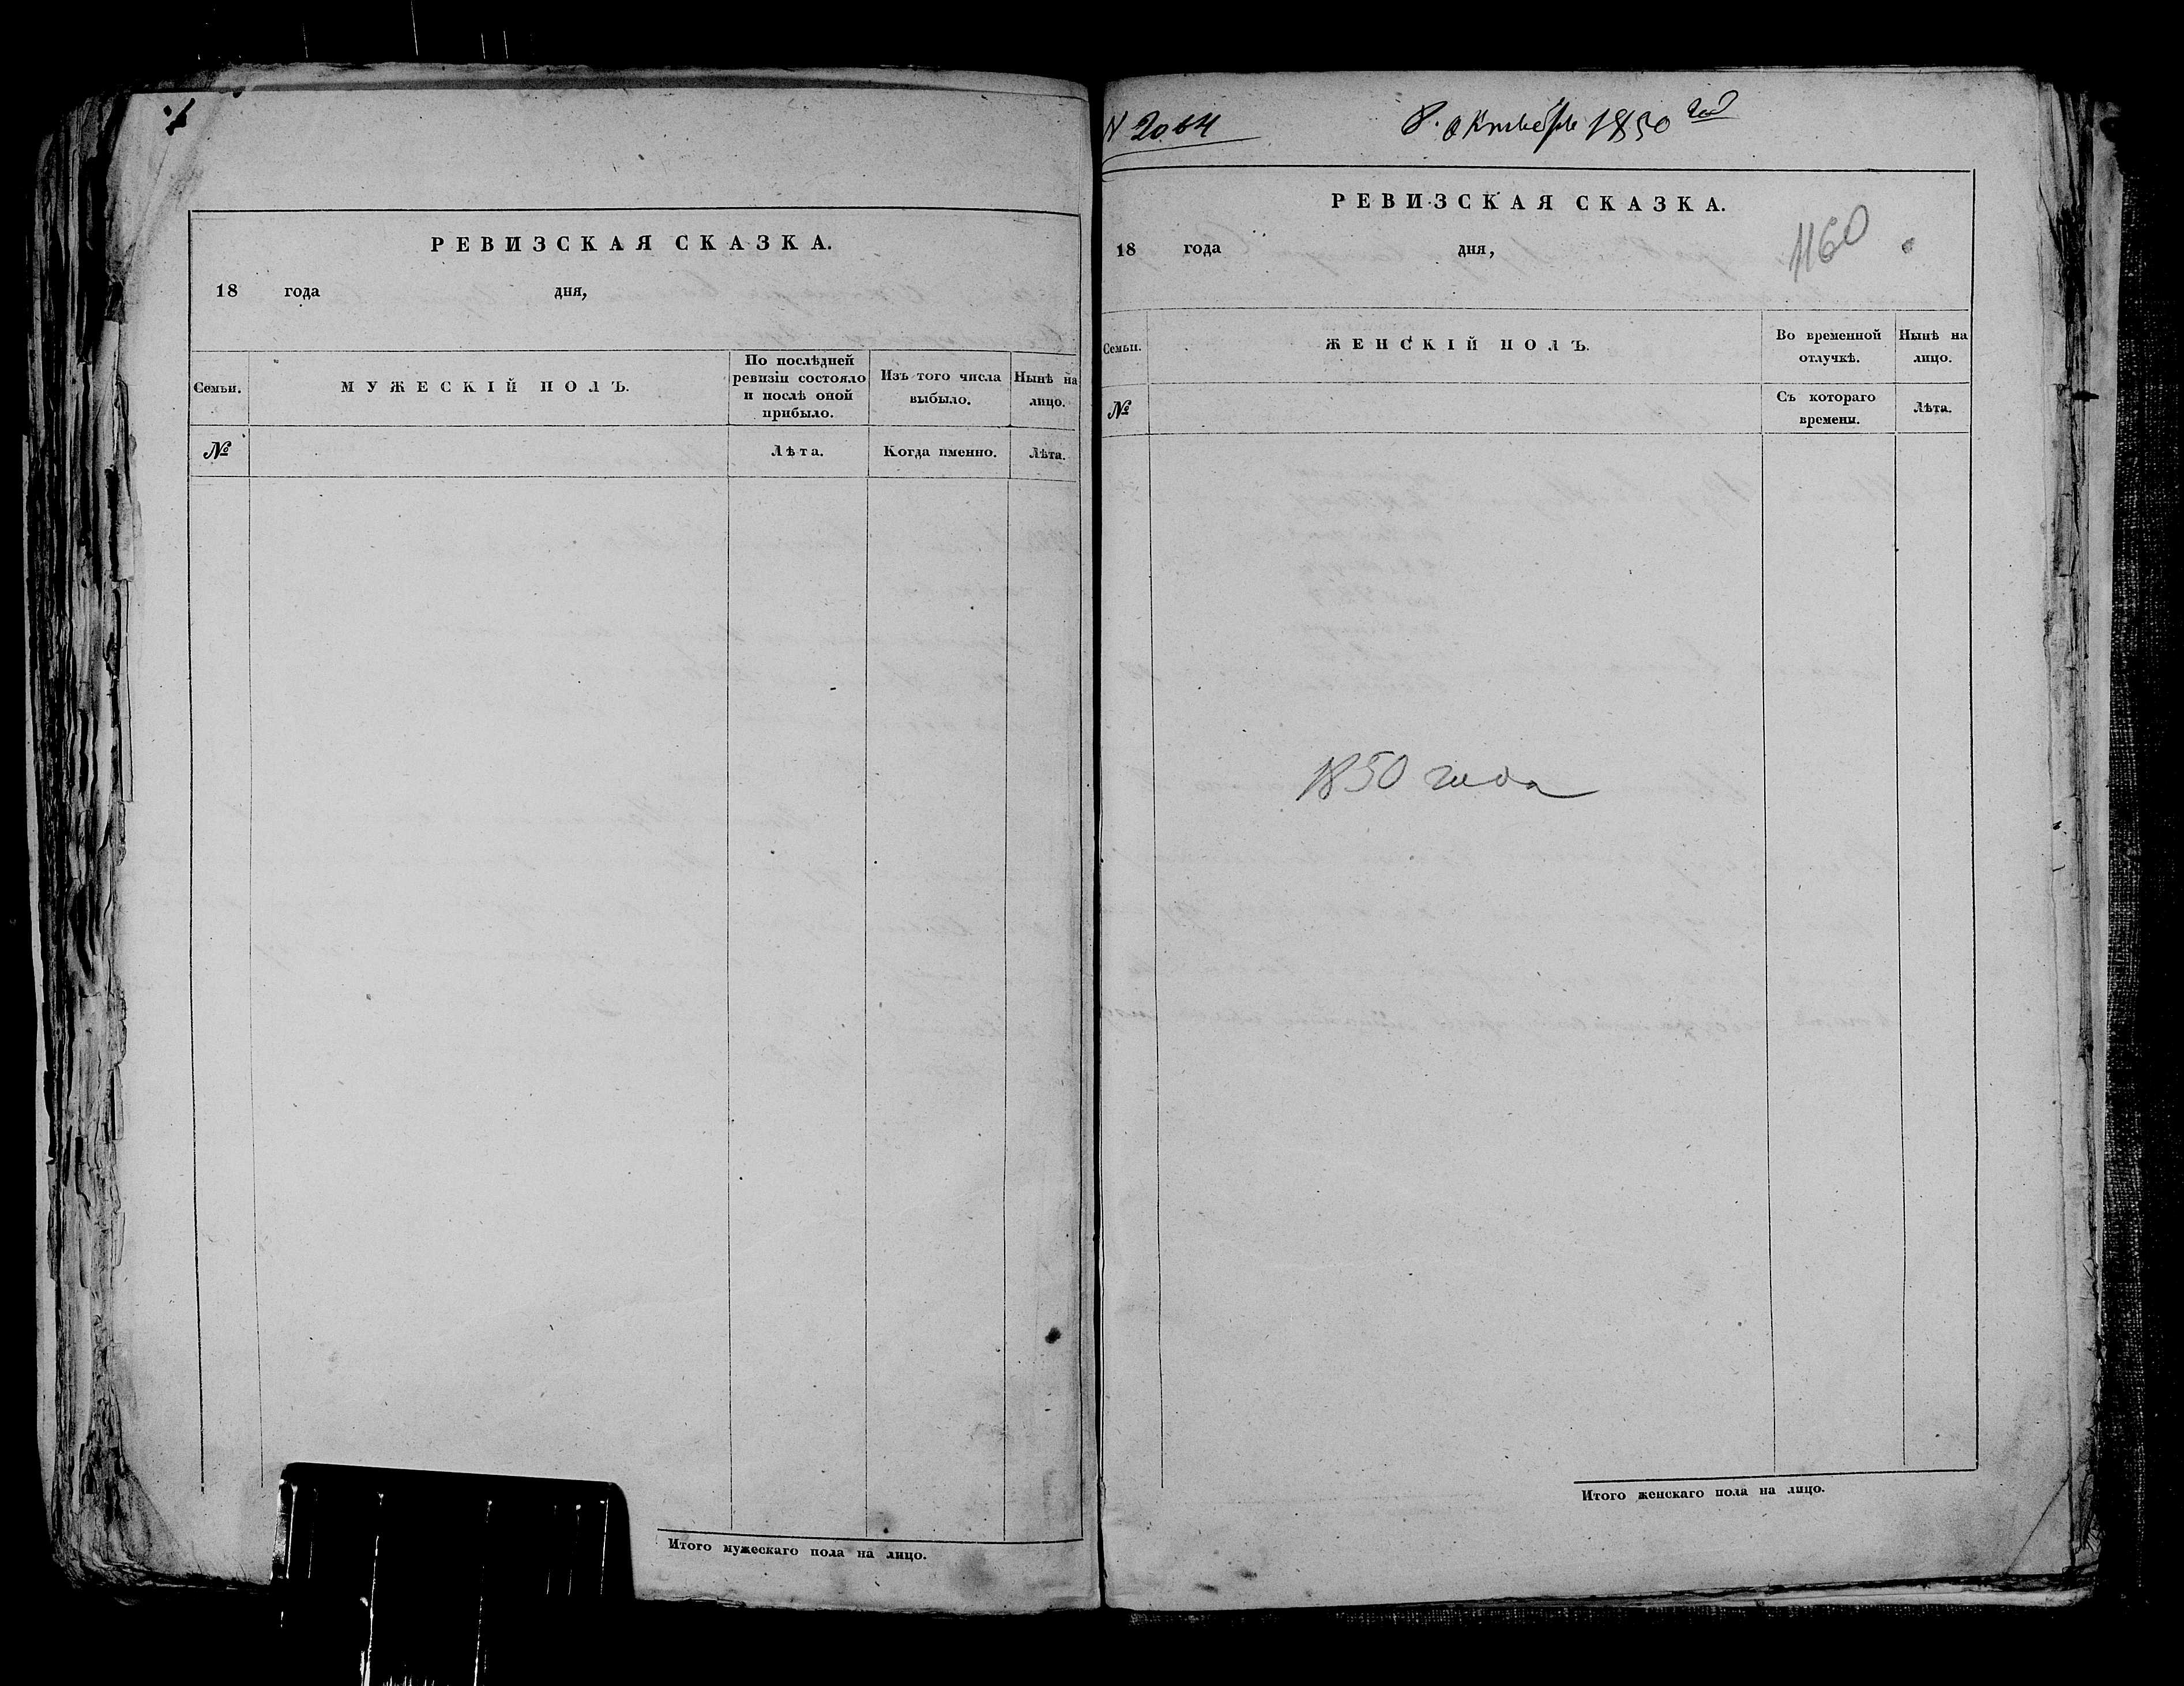 РЕВИЗСКАЯ СКАЗКА.
18 года дня,
Семьи.
МУЖЕСКІЙ ПОЛЪ.
По послѣдней
ревизіи состояло
и послѣ оной
прибыло.
Изъ того числа
выбыло.
Нынѣ на
лицо.
№
Лѣта.
Когда именно.
Лѣта.
Итого мужескаго пола на лицо.
N 2064
8. Октября 1850 год
РЕВИЗСКАЯ СКАЗКА.
1160
18 года дня,
Семьи.
ЖЕНСКІЙ ПОЛЪ.
Во временной
отлучкѣ.
Нынѣ на
лицо.
№
Съ котораго
времени.
Лѣта.
1850 года
Итого женскаго пола на лицо.